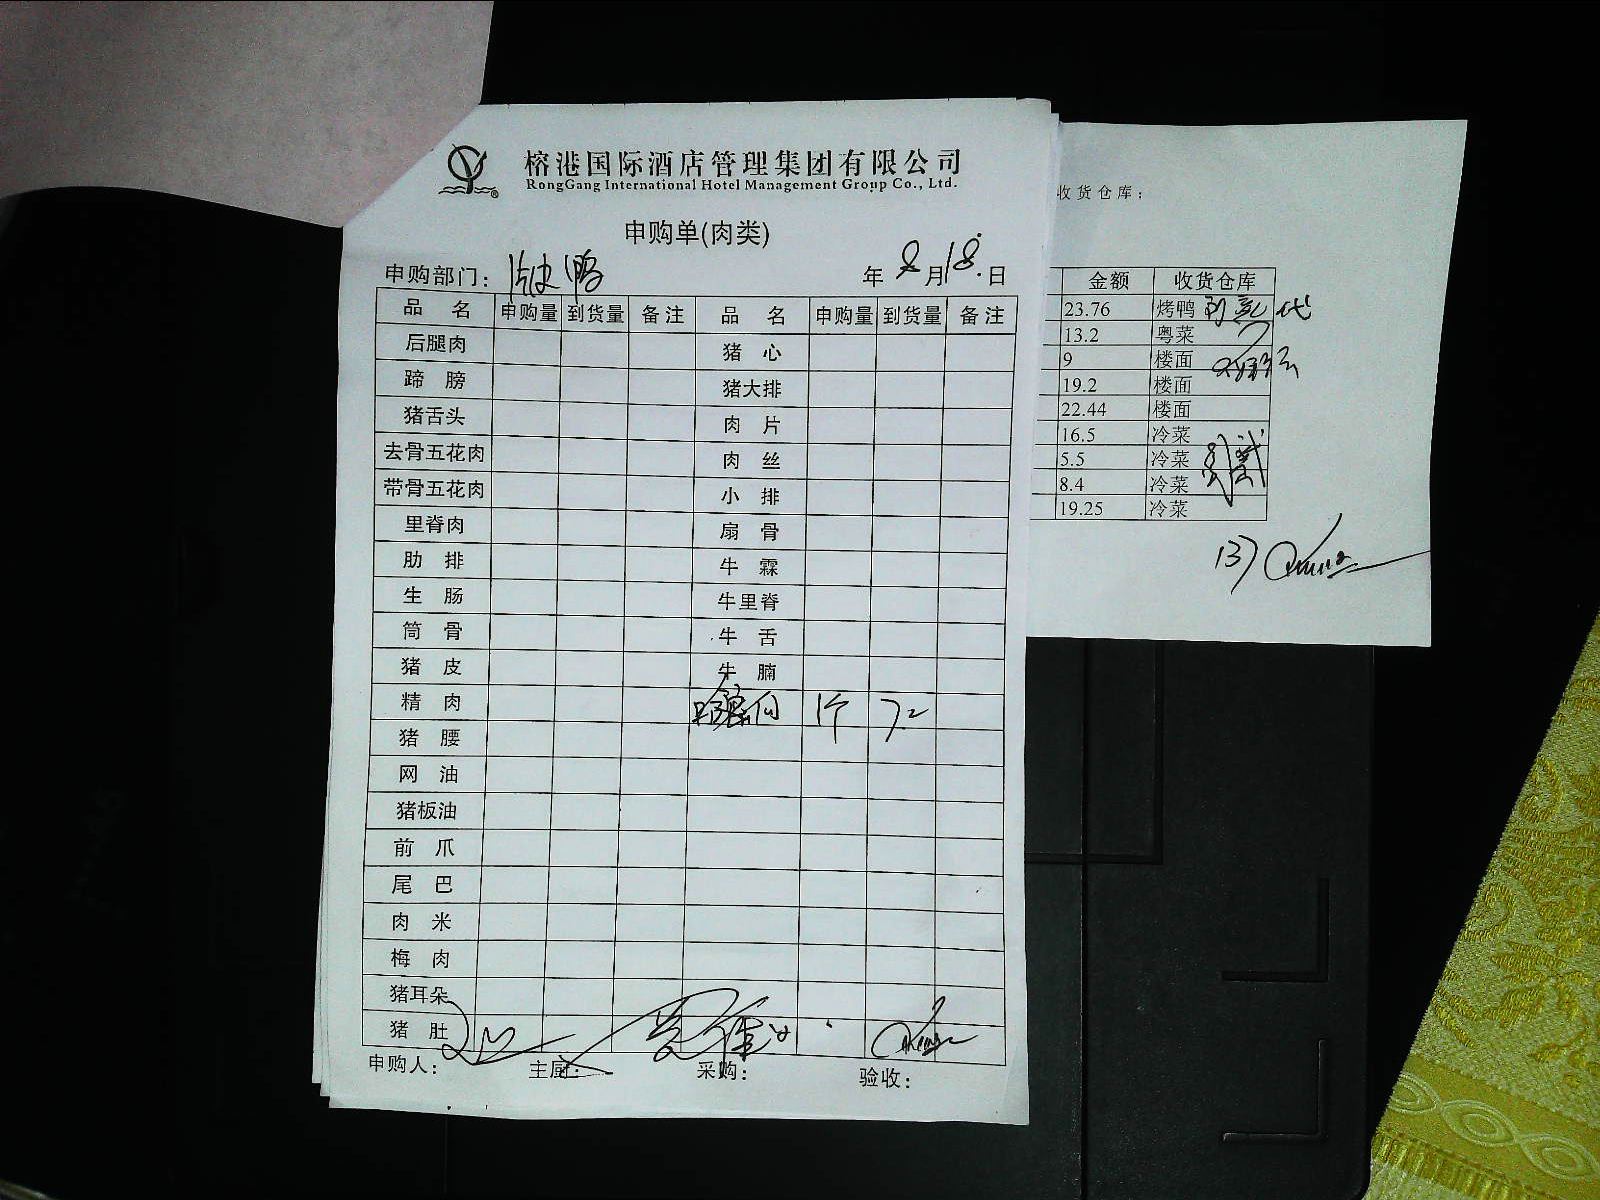 榕港国际酒店管理集团有限公司
RongGang International Hotel Management Group Co., Ltd.
申购单(肉类)
申购部门: 年 8 月 18 日
品 名 申购量 到货量 备注 品 名 申购量 到货量 备注
后腿肉 猪 心
蹄 膀 猪大排
猪舌头 肉 片
去骨五花肉 肉 丝
带骨五花肉 小 排
里脊肉 扇 骨
肋 排 牛 霖
生 肠 牛里脊
筒 骨 牛 舌
猪 皮 牛 腩
精 肉 1个 72
猪 腰
网 油
猪板油
前 爪
尾 巴
肉 米
梅 肉
猪耳朵
猪 肚
申购人: 主厨: 采购: 验收:
收货仓库:
金额 收货仓库
23.76 烤鸭 代
13.2 粤菜
9 楼面
19.2 楼面
22.44 楼面
16.5 冷菜
5.5 冷菜
8.4 冷菜
19.25 冷菜